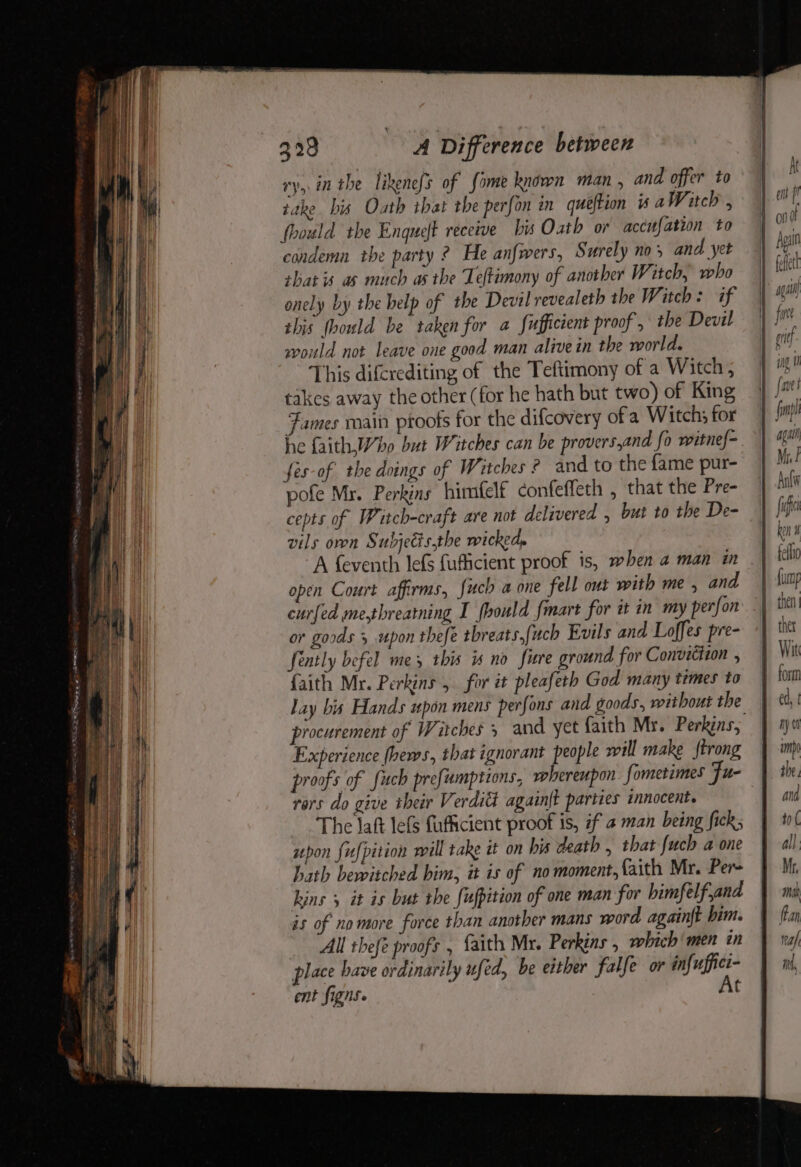 328 A Difference between
ry, in the likeneſs of ſome known man, and offer to
take his Oath that the perſon in queſtion is a Witch,
ſhould the Enqueſt receive his Oath or accuſation to
condemn the party? He anſwers, Surely no; and yet
that is as much as the Teſtimony of another Witch, who
onely by the help of the Devil revealeth the Witch: if
this ſhould be taken for a ſufficient proof, the Devil
would not leave one good man alive in the world.
This diſcrediting of the Teſtimony of a Witch,
takes away the other (for he hath but two) of King
James main proofs for the diſcovery of a Witch; for
he ſaith, Who but Witches can be provers, and ſo witneſ-
ſes of the doings of Witches? and to the ſame pur-
poſe Mr. Perkins himſelf confeſſeth, that the Pre-
cepts of Witch-craft are not delivered, but to the De-
vils own Subjects, the wicked.
A ſeventh leſs ſufficient proof is, when a man in
open Court affirms, ſuch a one fell out with me, and
curſed me, threatning I ſhould ſmart for it in my perſon
or goods; upon theſe threats, ſuch Evils and Loſſes pre-
ſently befel me; this is no ſure ground for Conviction,
ſaith Mr. Perkins, for it pleaſeth God many times to
lay his Hands upon mens perſons and goods, without the
procurement of Witches; and yet ſaith Mr. Perkins,
Experience ſhews, that ignorant people will make ſtrong
proofs of ſuch preſumptions, whereupon ſometimes Ju-
rors do give their Verdict againſt parties innocent.
The laſt leſs ſufficient proof is, if a man being ſick,
upon ſuſpition will take it on his death, that ſuch a one
hath bewitched him, it is of no moment, ſaith Mr. Per-
kins; it is but the ſuſpition of one man for himſelf, and
is of no more force than another mans word againſt him.
All theſe proofs, ſaith Mr. Perkins, which men in
place have ordinarily uſed, be either falſe or inſuffici-
ent ſigns.
At